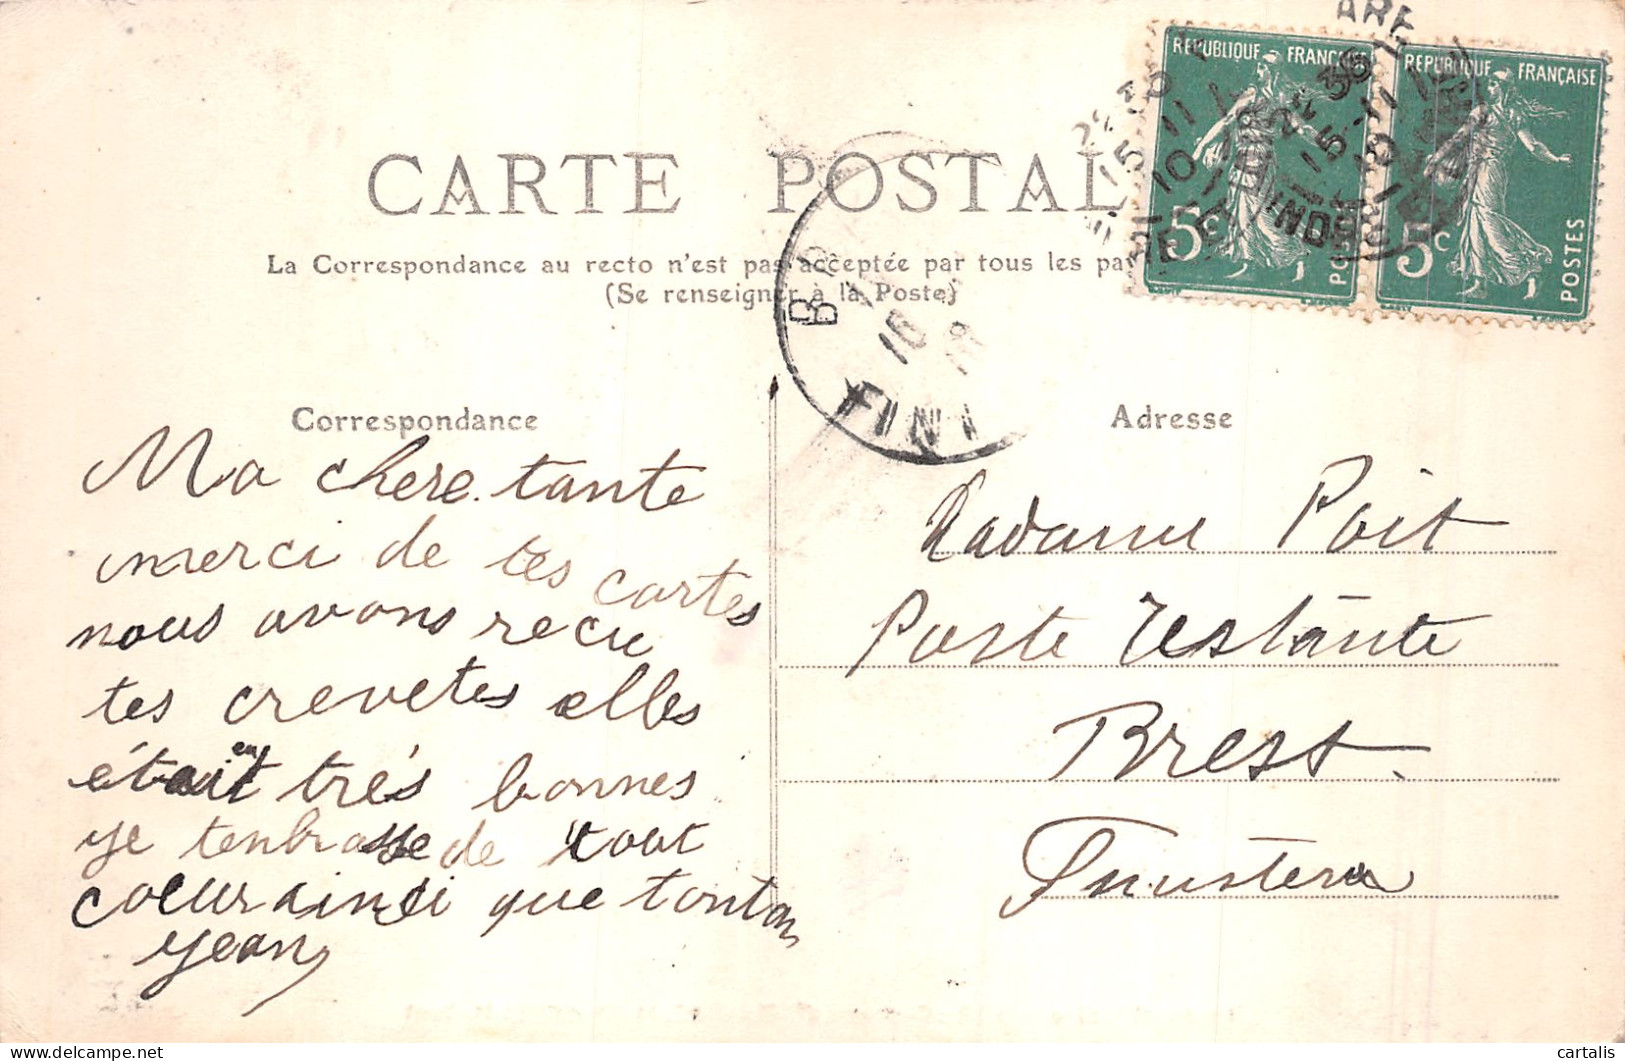 CARTE POSTALE
La Correspondance au recto n'est pas acceptée par tous les
(Se renseigner à la Poste)
REPUBLIQUE FRANÇAISE
5c
REPUBLIQUE FRANÇAISE
5c
POSTES
22 30
15 -11
10
FINI
16
Correspondance
Ma chere tante
merci de tes cartes
nous avons recu
tes crevetes elles
était très bonnes
je tenbrasse de tout
coeur ainsi que tonton
Jean
Adresse
Madame Poit
Poste restante
Brest
Finistere
cartalis